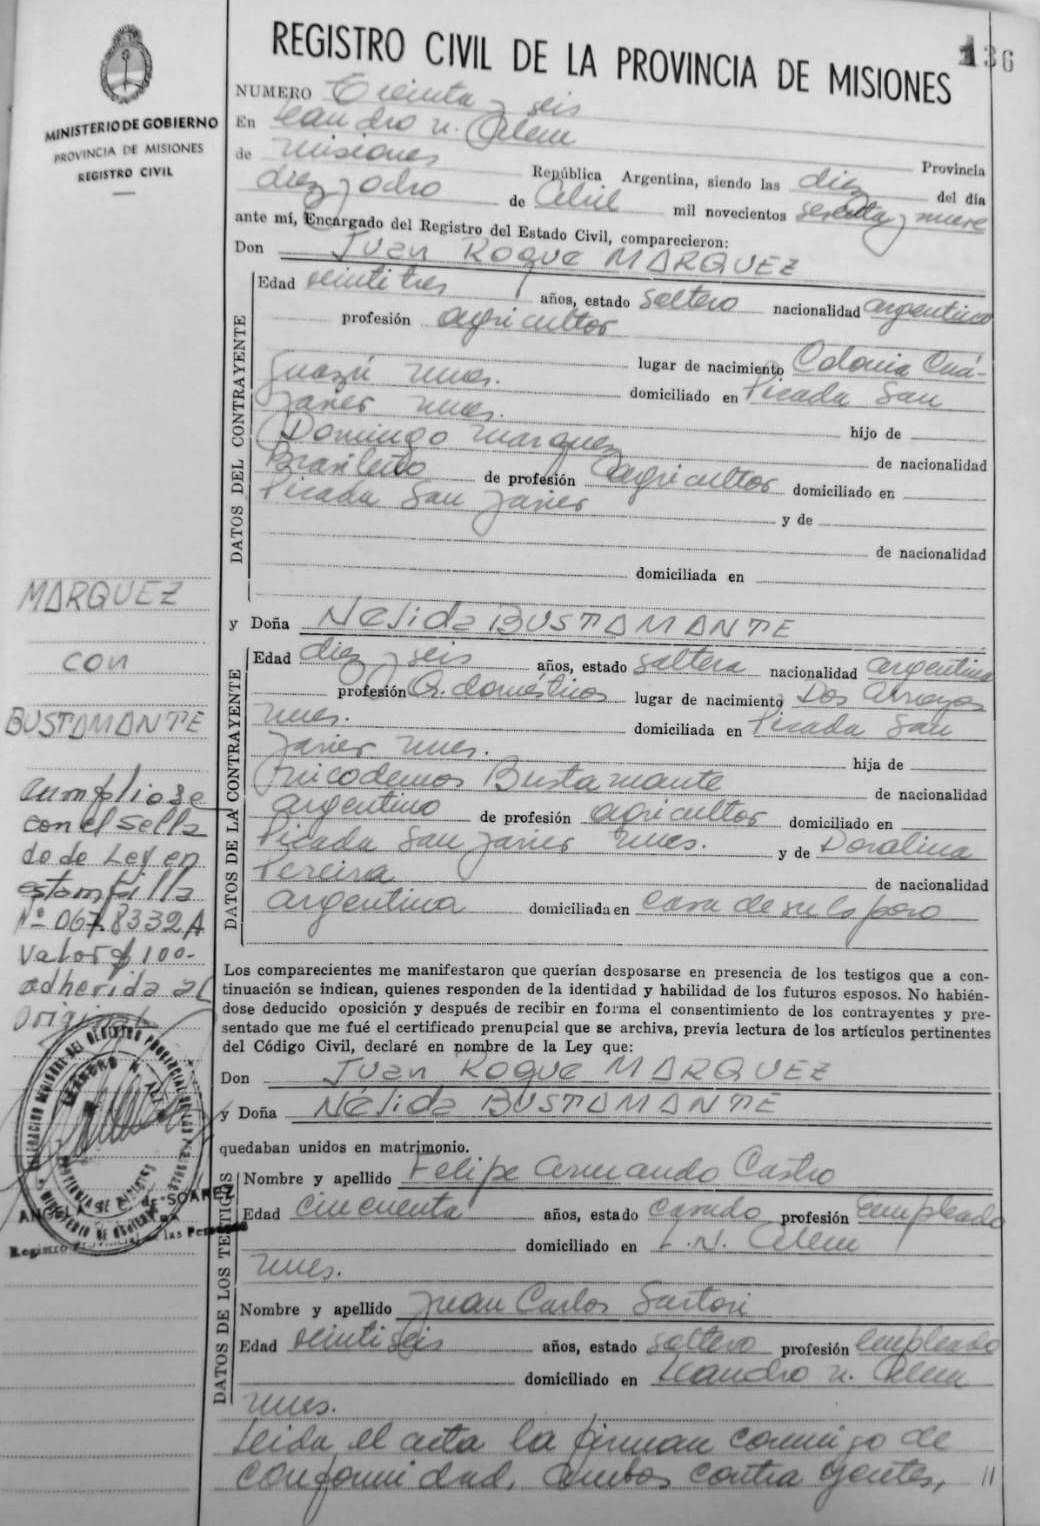 REGISTRO CIVIL DE LA PROVINCIA DE MISIONES
136
MINISTERIO DE GOBIERNO
PROVINCIA DE MISIONES
REGISTRO CIVIL
NUMERO Treinta y seis
En Leandro N. Alem
de Misiones Provincia
República Argentina, siendo las diez del día
diez y ocho de Abril mil novecientos sesenta y nueve
ante mí, Encargado del Registro del Estado Civil, comparecieron:
Don Juan Roque MARQUEZ
DATOS DEL CONTRAYENTE
Edad veintitres años, estado soltero nacionalidad argentino
profesión agricultor
lugar de nacimiento Colonia Cuá-
Guazú Mnes. domiciliado en Picada San
Javier Mnes. hijo de
Domingo Marquez de nacionalidad
Brasileño de profesión agricultor domiciliado en
Picada San Javier y de
de nacionalidad
domiciliada en
y Doña Nélida BUSTAMANTE
DATOS DE LA CONTRAYENTE
Edad diez y seis años, estado soltera nacionalidad argentina
profesión Q. domésticos lugar de nacimiento Dos Arroyos
Mnes. domiciliada en Picada San
Javier Mnes. hija de
Nicodemos Bustamante de nacionalidad
argentino de profesión agricultor domiciliado en
Picada San Javier Mnes. y de Doralina
Pereira de nacionalidad
argentina domiciliada en casa de su esposo
MARQUEZ
con
BUSTAMANTE
cumpliose
con el sella
do de Ley en
estampilla
Nº 0678332A
valor $ 100-
adherida al
Original
Los comparecientes me manifestaron que querían desposarse en presencia de los testigos que a con-
tinuación se indican, quienes responden de la identidad y habilidad de los futuros esposos. No habién-
dose deducido oposición y después de recibir en forma el consentimiento de los contrayentes y pre-
sentado que me fué el certificado prenupcial que se archiva, previa lectura de los artículos pertinentes
del Código Civil, declaré en nombre de la Ley que:
Don Juan Roque MARQUEZ
y Doña Nélida BUSTAMANTE
quedaban unidos en matrimonio.
DATOS DE LOS TESTIGOS
Nombre y apellido Felipe Armando Castro
Edad cincuenta años, estado casado profesión Empleado
domiciliado en L. N. Alem
Mnes.
Nombre y apellido Juan Carlos Sartori
Edad veintiseis años, estado soltero profesión Empleado
domiciliado en Leandro N. Alem
Mnes.
Leída el acta la firman conmigo de
conformidad, ambos contrayentes, //